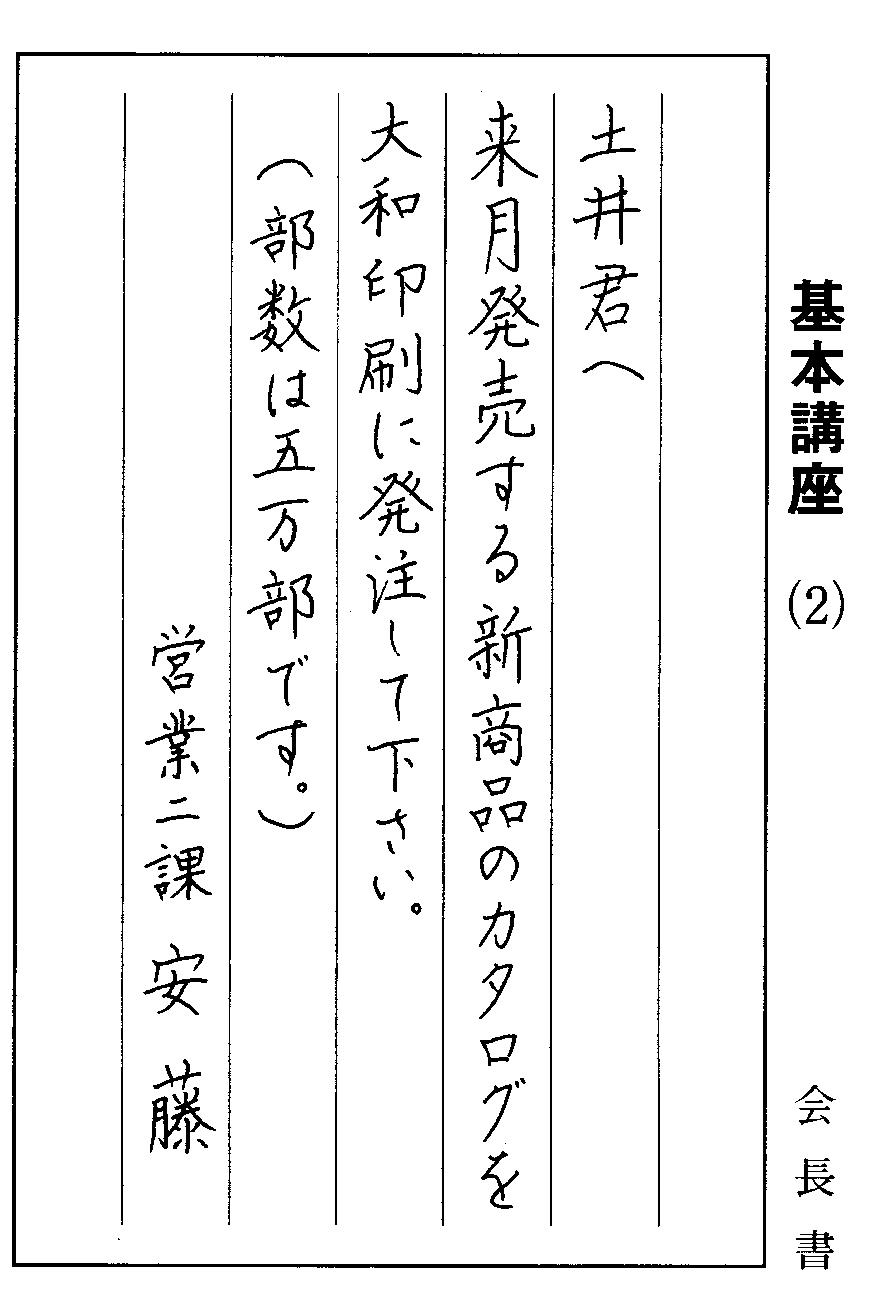 基本講座 (2) 会長書
土井君へ
来月発売する新商品のカタログを
大和印刷に発注して下さい。
(部数は五万部です。)
営業二課 安藤